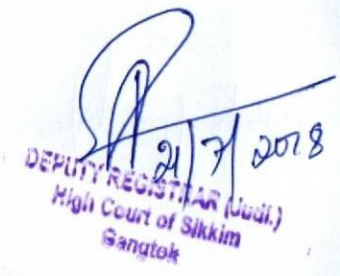 21/7/2018
DEPUTY REGISTRAR (Judl.)
High Court of Sikkim
Gangtok